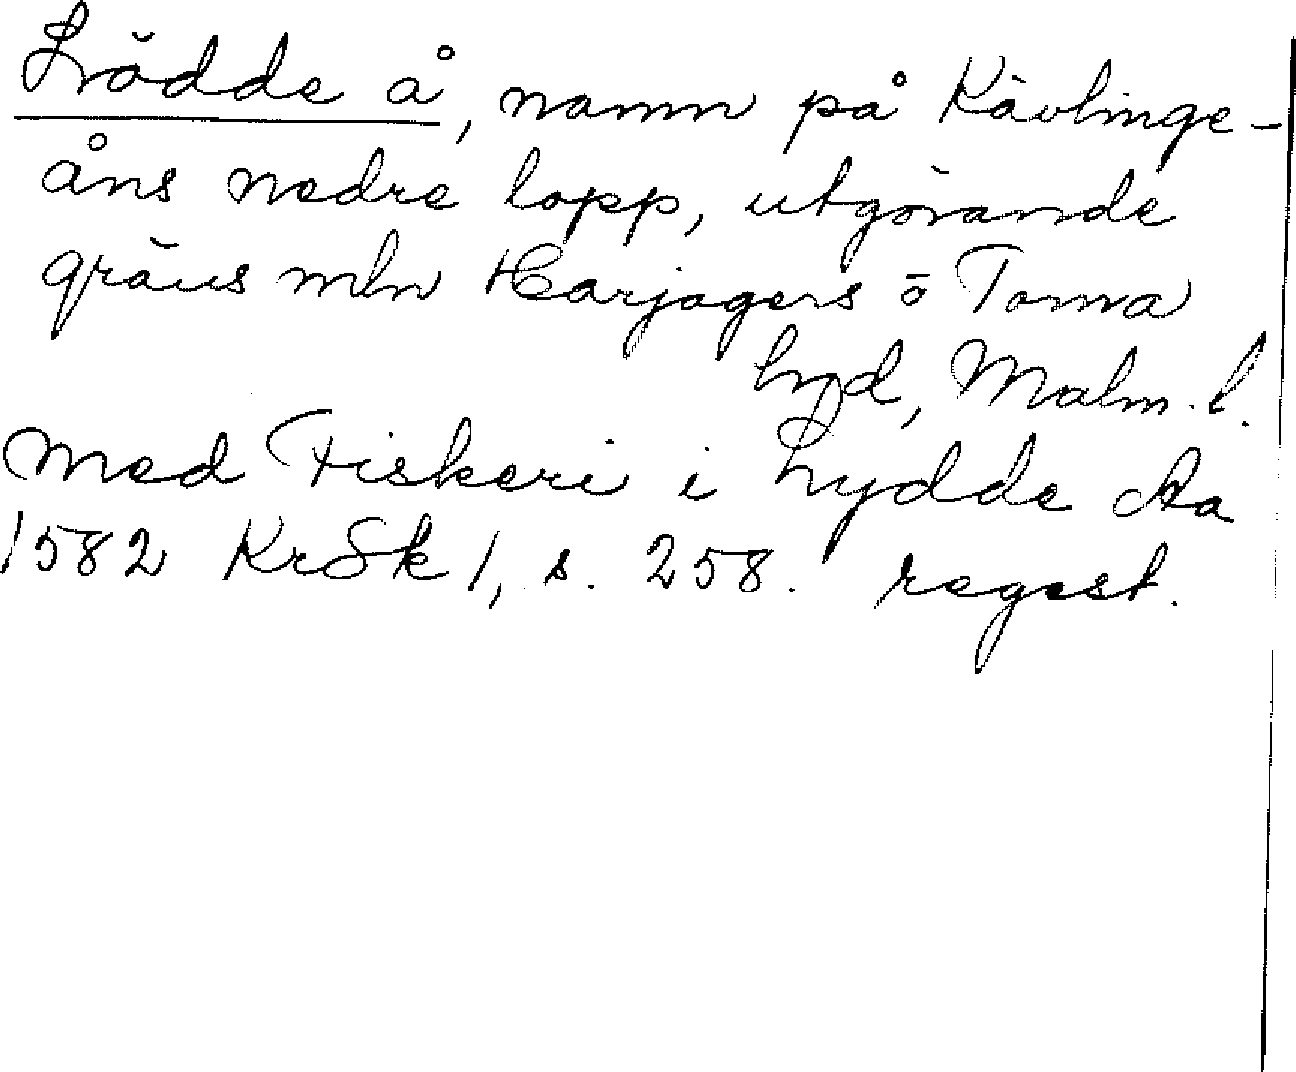 Lödde å, namn på Kävlinge-
åns nedre lopp, utgörande
gräns mln Harjagers o Torna
hrd, Malm. l.
Med Fiskeri i Lydde Aa
1582 KrSk 1, s. 258. regest.